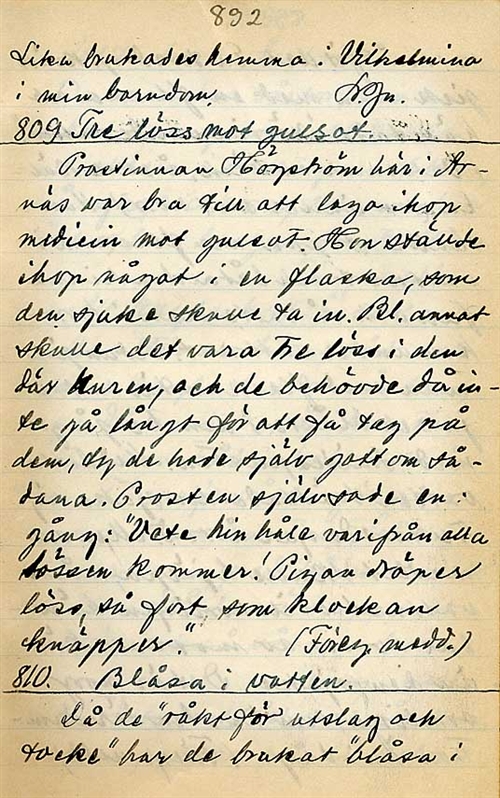 892
Lika brukades hemma i Vilhelmina
i min barndom. N. Jn.
809. Tre löss mot gulsot.
Prostinnan Högström här i Ar-
näs var bra till att laga ihop
medicin mot gulsot. Hon ställde
ihop något i en flaska, som
den sjuke skulle ta in. Bl. annat
skulle det vara tre löss i den
där kuren, och de behövde då in-
te gå långt för att få tag på
dem, ty de hade själv gott om så-
dana. Prosten själv sade en
gång: "Vete hin håle varifrån alla
lössen kommer! Pigan dräper
löss, så fort som klockan
knäpper." (Föreg. medd.)
810. Blåsa i vatten.
Då de "råkt för utslag och
tocke" har de brukat "blåsa i